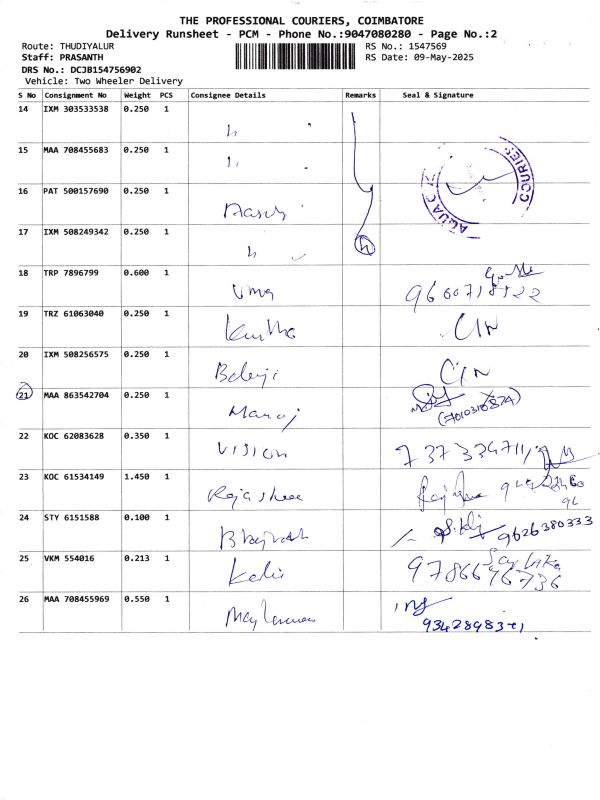 THE PROFESSIONAL COURIERS, COIMBATORE
Delivery Runsheet - PCM - Phone No.:9047080280 - Page No.:2
Route: THUDIYALUR RS No.: 1547569
Staff: PRASANTH RS Date: 09-May-2025
DRS No.: DCJB154756902
Vehicle: Two Wheeler Delivery
S No Consignment No Weight PCS Consignee Details Remarks Seal & Signature
14 IXM 303533538 0.250 1
15 MAA 708455683 0.250 1
16 PAT 500157690 0.250 1
17 IXM 508249342 0.250 1
18 TRP 7896799 0.600 1 Uma
19 TRZ 61063040 0.250 1
20 IXM 508256575 0.250 1 Balaji
21 MAA 863542704 0.250 1 Manoj
22 KOC 62083628 0.350 1 VISION
23 KOC 61534149 1.450 1 Rajashree
24 STY 6151588 0.100 1 9626380333
25 VKM 554016 0.213 1 9786696736
26 MAA 708455969 0.550 1